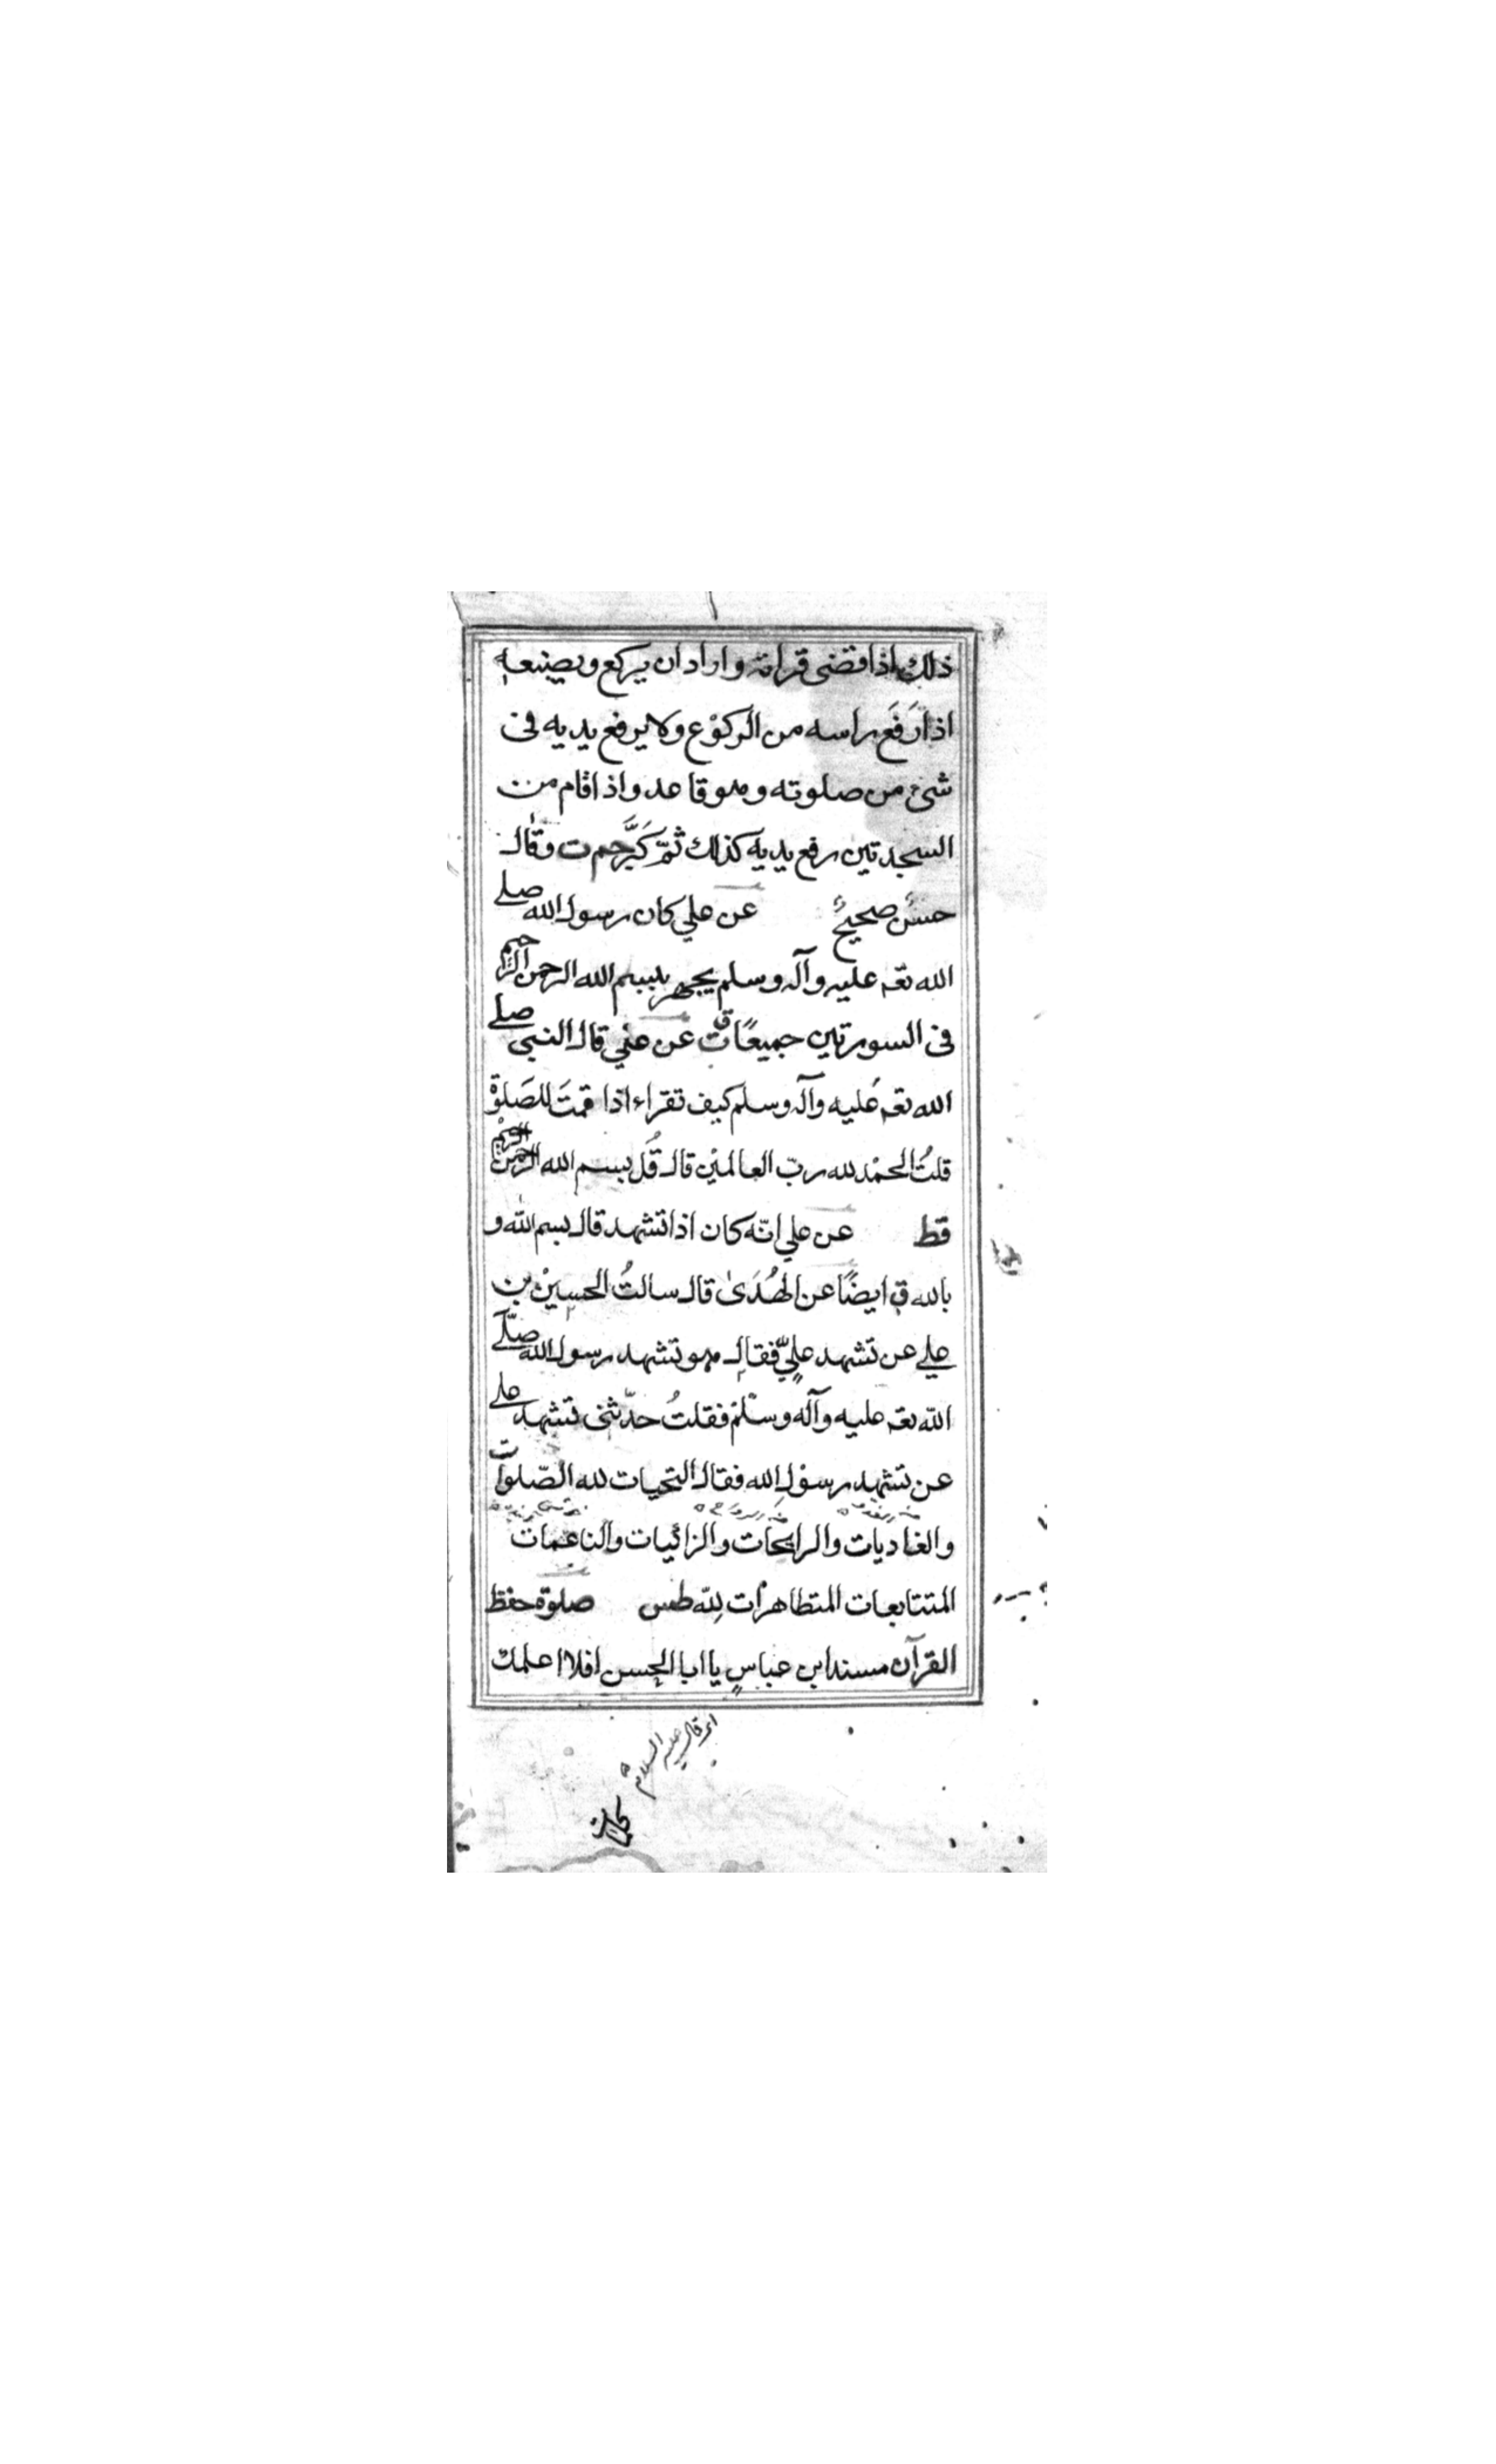 ذلك اذا قضى قراته واراد ان يركع ويصنعه
اذا رَفَعَ راسه من الركوْع ولا يرفع يديه فى
شئ من صلوته وهو قاعد واذا قام من
السجدتين رفع يديه كذلك ثمّ كَبَّر حم ت وقال
حسنٌ صحيحٌ عن علي كان رسول الله صلے
الله تعه عليه وآله وسلم يجهر ببسم الله الرحمن الرحيم
فى السورتين جميعًا قت عن علي قال النبى صلے
الله تعه عَليه وآله وسلم كيف تقراء اذا قمتَ للصَلوٰة
قلتُ الحمْد لله ربّ العالمين قال قُل بسم الله الرحمن الرحيم
قط عن علي انّه كان اذا تشهد قال بسم الله و
بالله ق ايضًا عن الهُدَىٰ قال سالتُ الحسينْ بن
علے عن تشهد عليٍّ فقال هو تشهد رسول الله صلّے
الله تعه عليه وآله وسلّم فقلتُ حدّثنى تشهد علے
عن تشهد رسوْل الله فقال التحيات لله الصّلوات
والغاديات والرايحات والزائيات والناعمات
المتتابعات المتطاهرات لله طس صلوة حفظ
القرآن مسند ابن عباسٍ يا ابا الحسن افلا اعلمك
عليه السلام